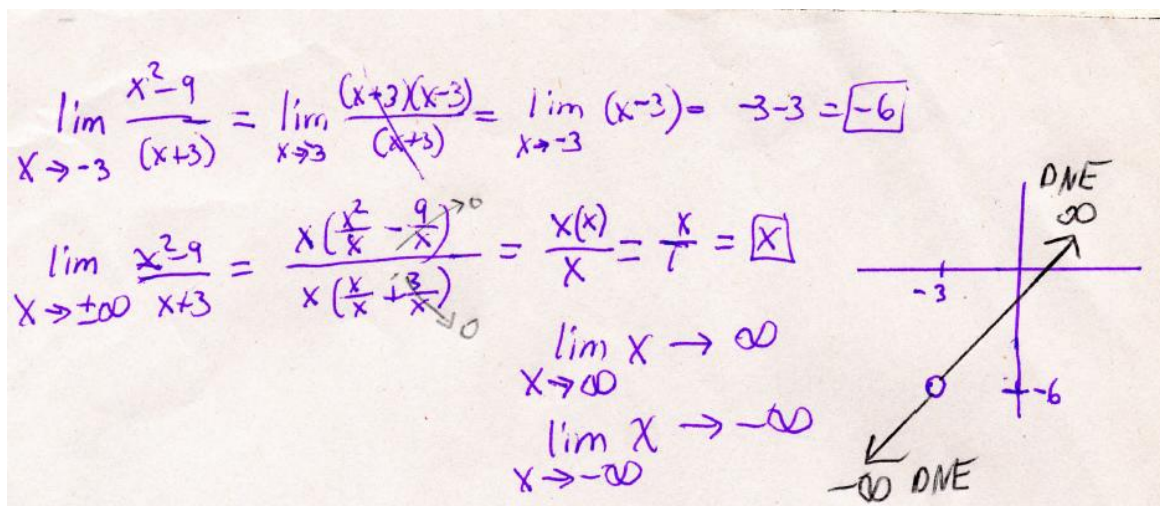 lim x→-3 (x²-9)/(x+3) = lim x→3 ((x+3)(x-3))/(x+3) = lim x→-3 (x-3) = -3-3 = -6
lim x→±∞ (x²-9)/(x+3) = (x(x²/x - 9/x))/(x(x/x + 3/x)) = x(x)/x = x/1 = x
0
0
lim x→∞ x → ∞
lim x→-∞ x → -∞
DNE
∞
-3
-6
-∞ DNE